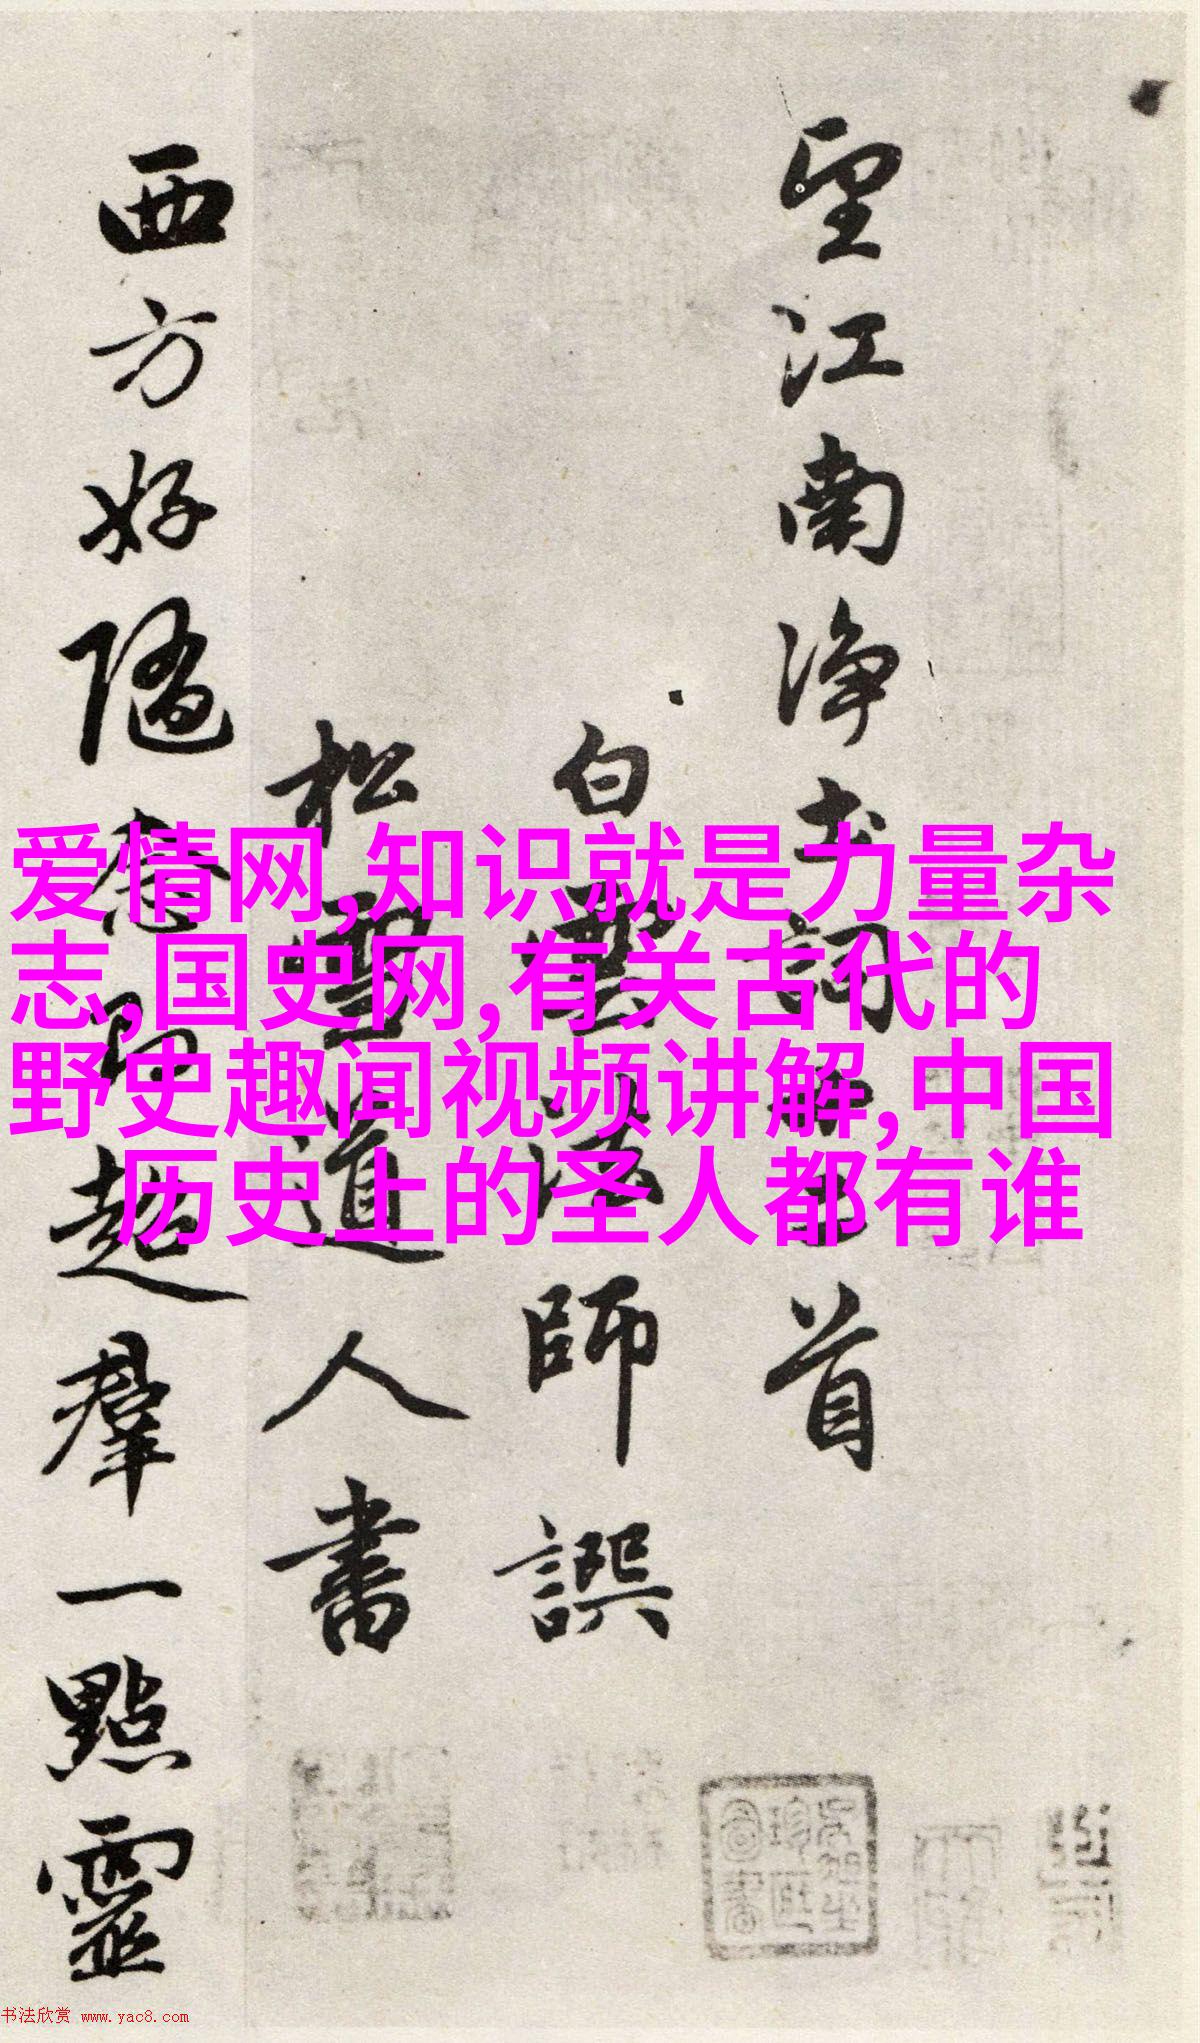 望江南净土詞首
白雲法師譔
松雪道人書
西方好隨念即超羣一點靈
爱情网,知识就是力量杂
志,国史网,有关古代的
野史趣闻视频讲解,中国
历史上的圣人都有谁
书法欣赏 www.yac8.com